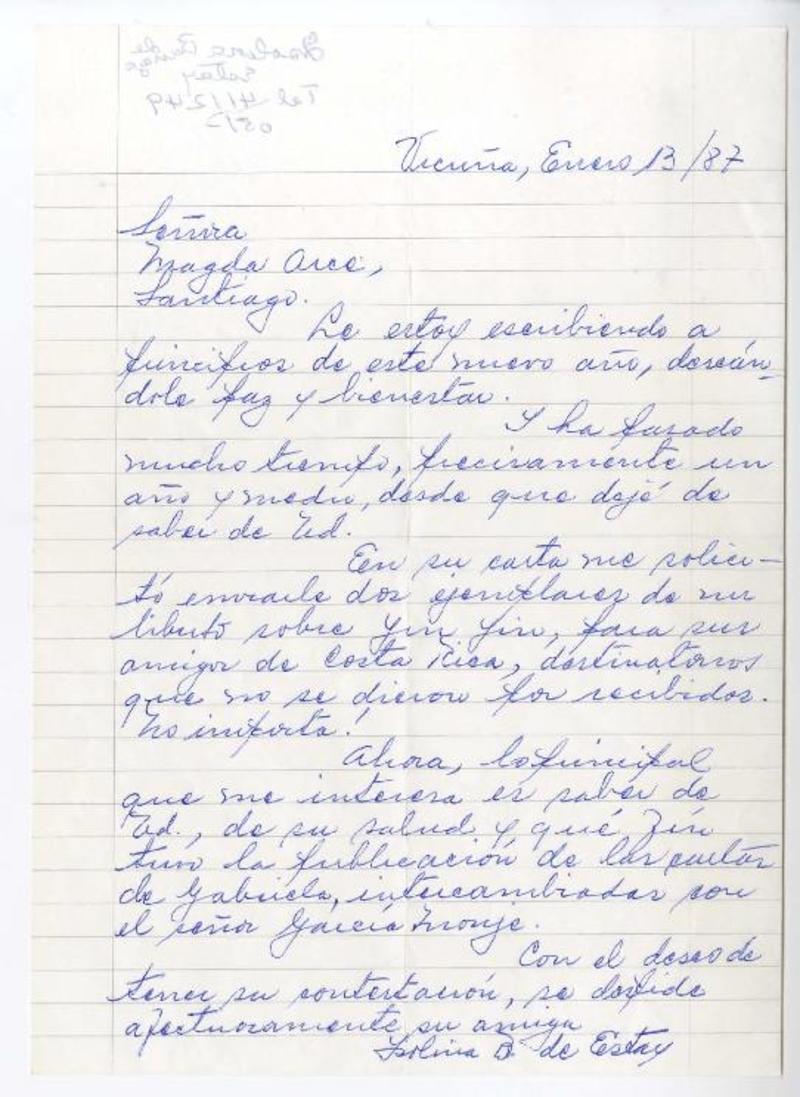 Isolina B. de
Estay
Tel 411249
Vicuña, Enero 13/87
Señora
Magda Arce,
Santiago.
Le estoy escribiendo a
principios de este nuevo año, deseán-
dole paz y bienestar.
Y ha pasado
mucho tiempo, precisamente un
año y medio, desde que dejé de
saber de Ud.
En su carta me solici-
tó enviarle dos ejemplares de mi
librito sobre Yin Yin, para sus
amigos de Costa Rica, destinatarios
que no se dieron por recibidos.
No importa!
Ahora, lo principal
que me interesa es saber de
Ud., de su salud y qué fin
tuvo la publicación de las cartas
de Gabriela, intercambiadas con
el señor García Monje.
Con el deseo de
tener su contestación, se despide
afectuosamente su amiga
Isolina B. de Estay